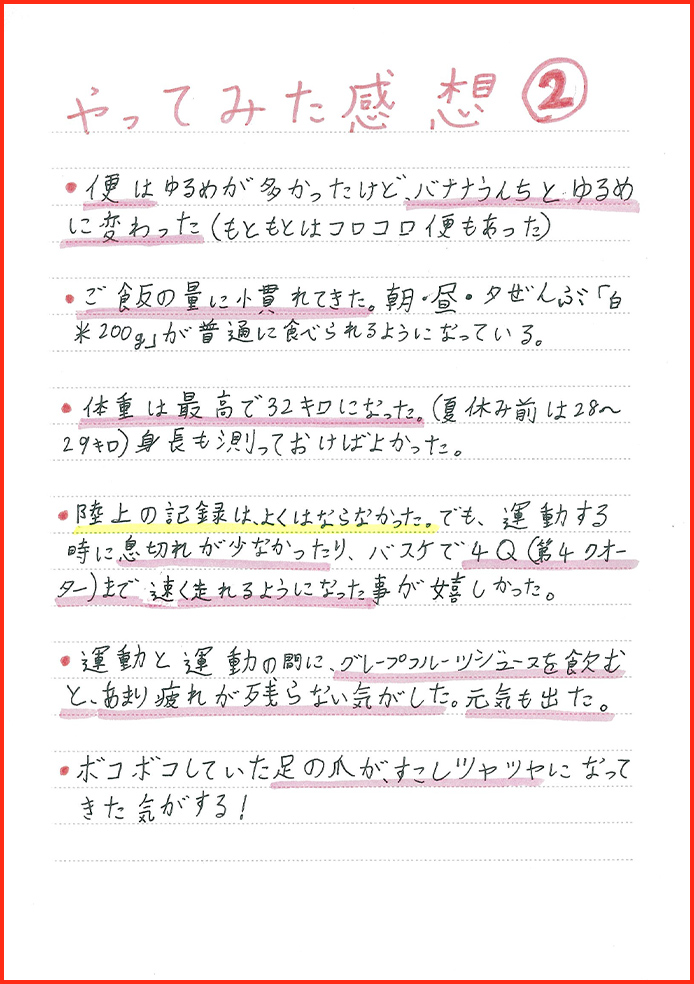 やってみた感想②
• 便はゆるめが多かったけど、バナナうんちとゆるめ
に変わった(もともとはコロコロ便もあった)
• ご飯の量に慣れてきた。朝・昼・夕ぜんぶ「白
米200g」が普通に食べられるようになっている。
• 体重は最高で32キロになった。(夏休み前は28〜
29キロ)身長も測っておけばよかった。
• 陸上の記録は、よくはならなかった。でも、運動する
時に息切れが少なかったり、バスケで4Q(第4クオー
ター)まで速く走れるようになった事が嬉しかった。
• 運動と運動の間に、グレープフルーツジュースを飲む
と、あまり疲れが残らない気がした。元気も出た。
• ボコボコしていた足の爪が、すこしツヤツヤになって
きた気がする!